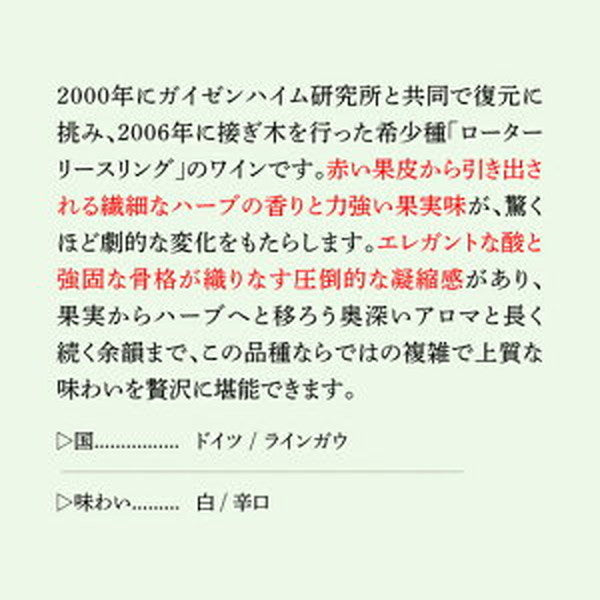 2000年にガイゼンハイム研究所と共同で復元に
挑み、2006年に接ぎ木を行った希少種「ローター
リースリング」のワインです。赤い果皮から引き出さ
れる繊細なハーブの香りと力強い果実味が、驚く
ほど劇的な変化をもたらします。エレガントな酸と
強固な骨格が織りなす圧倒的な凝縮感があり、
果実からハーブへと移ろう奥深いアロマと長く
続く余韻まで、この品種ならではの複雑で上質な
味わいを贅沢に堪能できます。
▷国................ ドイツ / ラインガウ
▷味わい......... 白 / 辛口